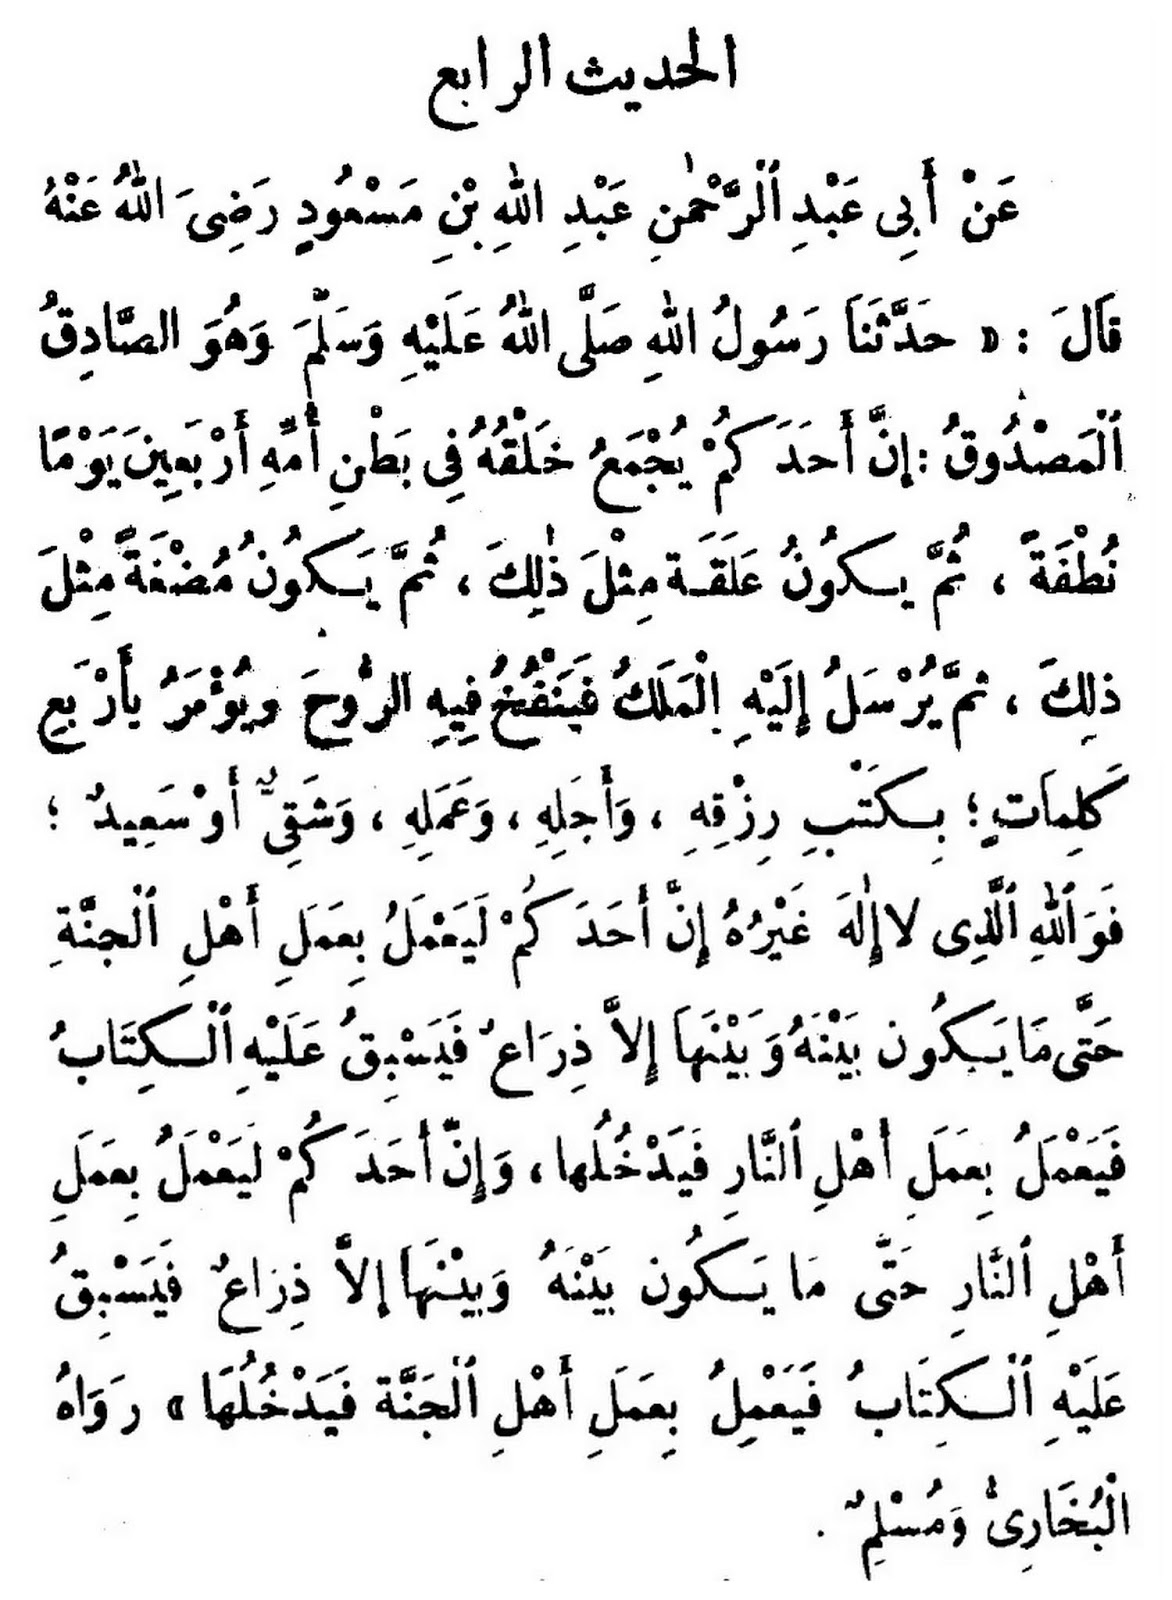 الحديث الرابع
عَنْ أَبِى عَبْدِ ٱلرَّحْمٰنِ عَبْدِ اللهِ بْنِ مَسْعُودٍ رَضِىَ اللهُ عَنْهُ
قَالَ : « حَدَّثَنَا رَسُولُ اللهِ صَلَّى اللهُ عَلَيْهِ وَسَلَّمَ وَهُوَ الصَّادِقُ
ٱلْمَصْدُوقُ : إِنَّ أَحَدَكُمْ يُجْمَعُ خَلْقُهُ فِى بَطْنِ أُمِّهِ أَرْبَعِينَ يَوْمًا
نُطْفَةً ، ثُمَّ يكُونُ عَلَقَة مِثْلَ ذٰلِكَ ، ثُمَّ يَكُونُ مُضْغَةً مِثْلَ
ذلِكَ ، ثمَّ يُرْسَلُ إِلَيْهِ الْمَلَكُ فَيَنْفُخُ فِيهِ الرُّوحَ ويُؤْمَرُ بأَرْبَعِ
كَلِمَاتٍ ؛ بِكَتْبِ رِزْقِهِ ، وَأَجَلِهِ ، وَعَمَلِهِ ، وَشَقِىٌّ أَوْ سَعِيدٌ ؛
فَوَٱللهِ ٱلَّذِى لا إِلٰهَ غَيْرُهُ إِنَّ أَحَدَكُمْ لَيَعْمَلُ بِعَمَلِ أَهْلِ ٱلْجنَّةِ
حَتَّى مَا يَكُون بَيْنَهُ وَبَيْنَهَا إِلاَّ ذِرَاعٌ فَيَسْبِقُ عَلَيْهِ ٱلْكِتَابُ
فَيَعْمَلُ بِعَمَلِ أَهْلِ ٱلنَّارِ فَيَدْخُلُها ، وَإِنَّ أَحَدَكُمْ لَيَعْمَلُ بِعَمَلِ
أَهْلِ ٱلنَّارِ حَتَّى مَا يَكُون بَيْنَهُ وَبيْنَهَا إلاَّ ذِرَاعٌ فَيَسْبِقُ
عَلَيْهِ ٱلْكِتَابُ فَيَعْمِلُ بِعمَلِ أَهْلِ ٱلْجَنَّة فَيَدْخُلُهَا » رَوَاهُ
الْبُخَارِىُّ وَمُسْلِمٌ .